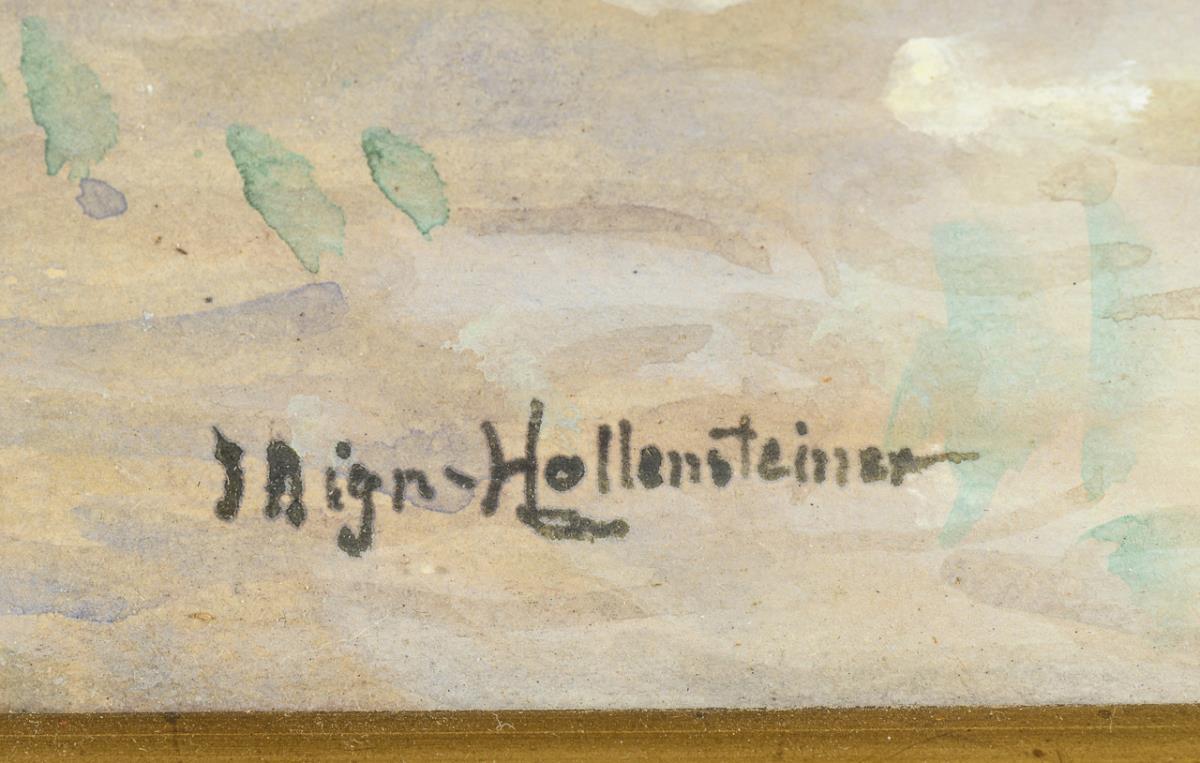 J Aign-Hollensteiner